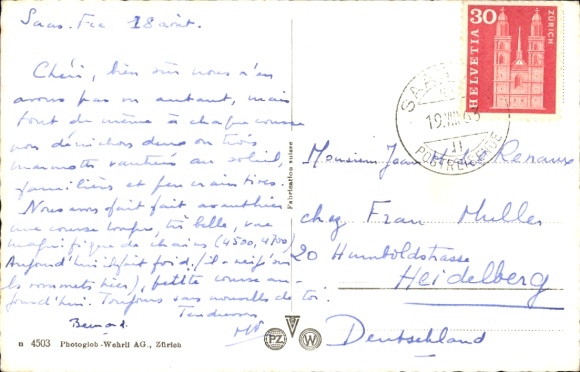 Saas-Fee 18 août.
Chéri, bien sûr nous n'en
avons pas vu autant, mais
tout de même à chaque course
nous dénichons deux ou trois
marmottes vautrées au soleil,
familières et peu craintives.
Nous avons fait avant hier
une course longue, très belle, vue
magnifique de chaines (4500, 4700)
Aujourd'hui il fait froid. (il a neigé sur
les sommets hier), petite course au-
jourd'hui. Toujours sans nouvelles de toi.
Tendresses
Bernard.
n 4503 Photoglob-Wehrli AG., Zürich
Fabrication suisse
PZ W
30
HELVETIA
ZÜRICH
SAAS
19.VIII.63
POSTREISENDE
Monsieur Jean Renaux
chez Frau Müller
20 Humboldstrasse
Heidelberg
Deutschland